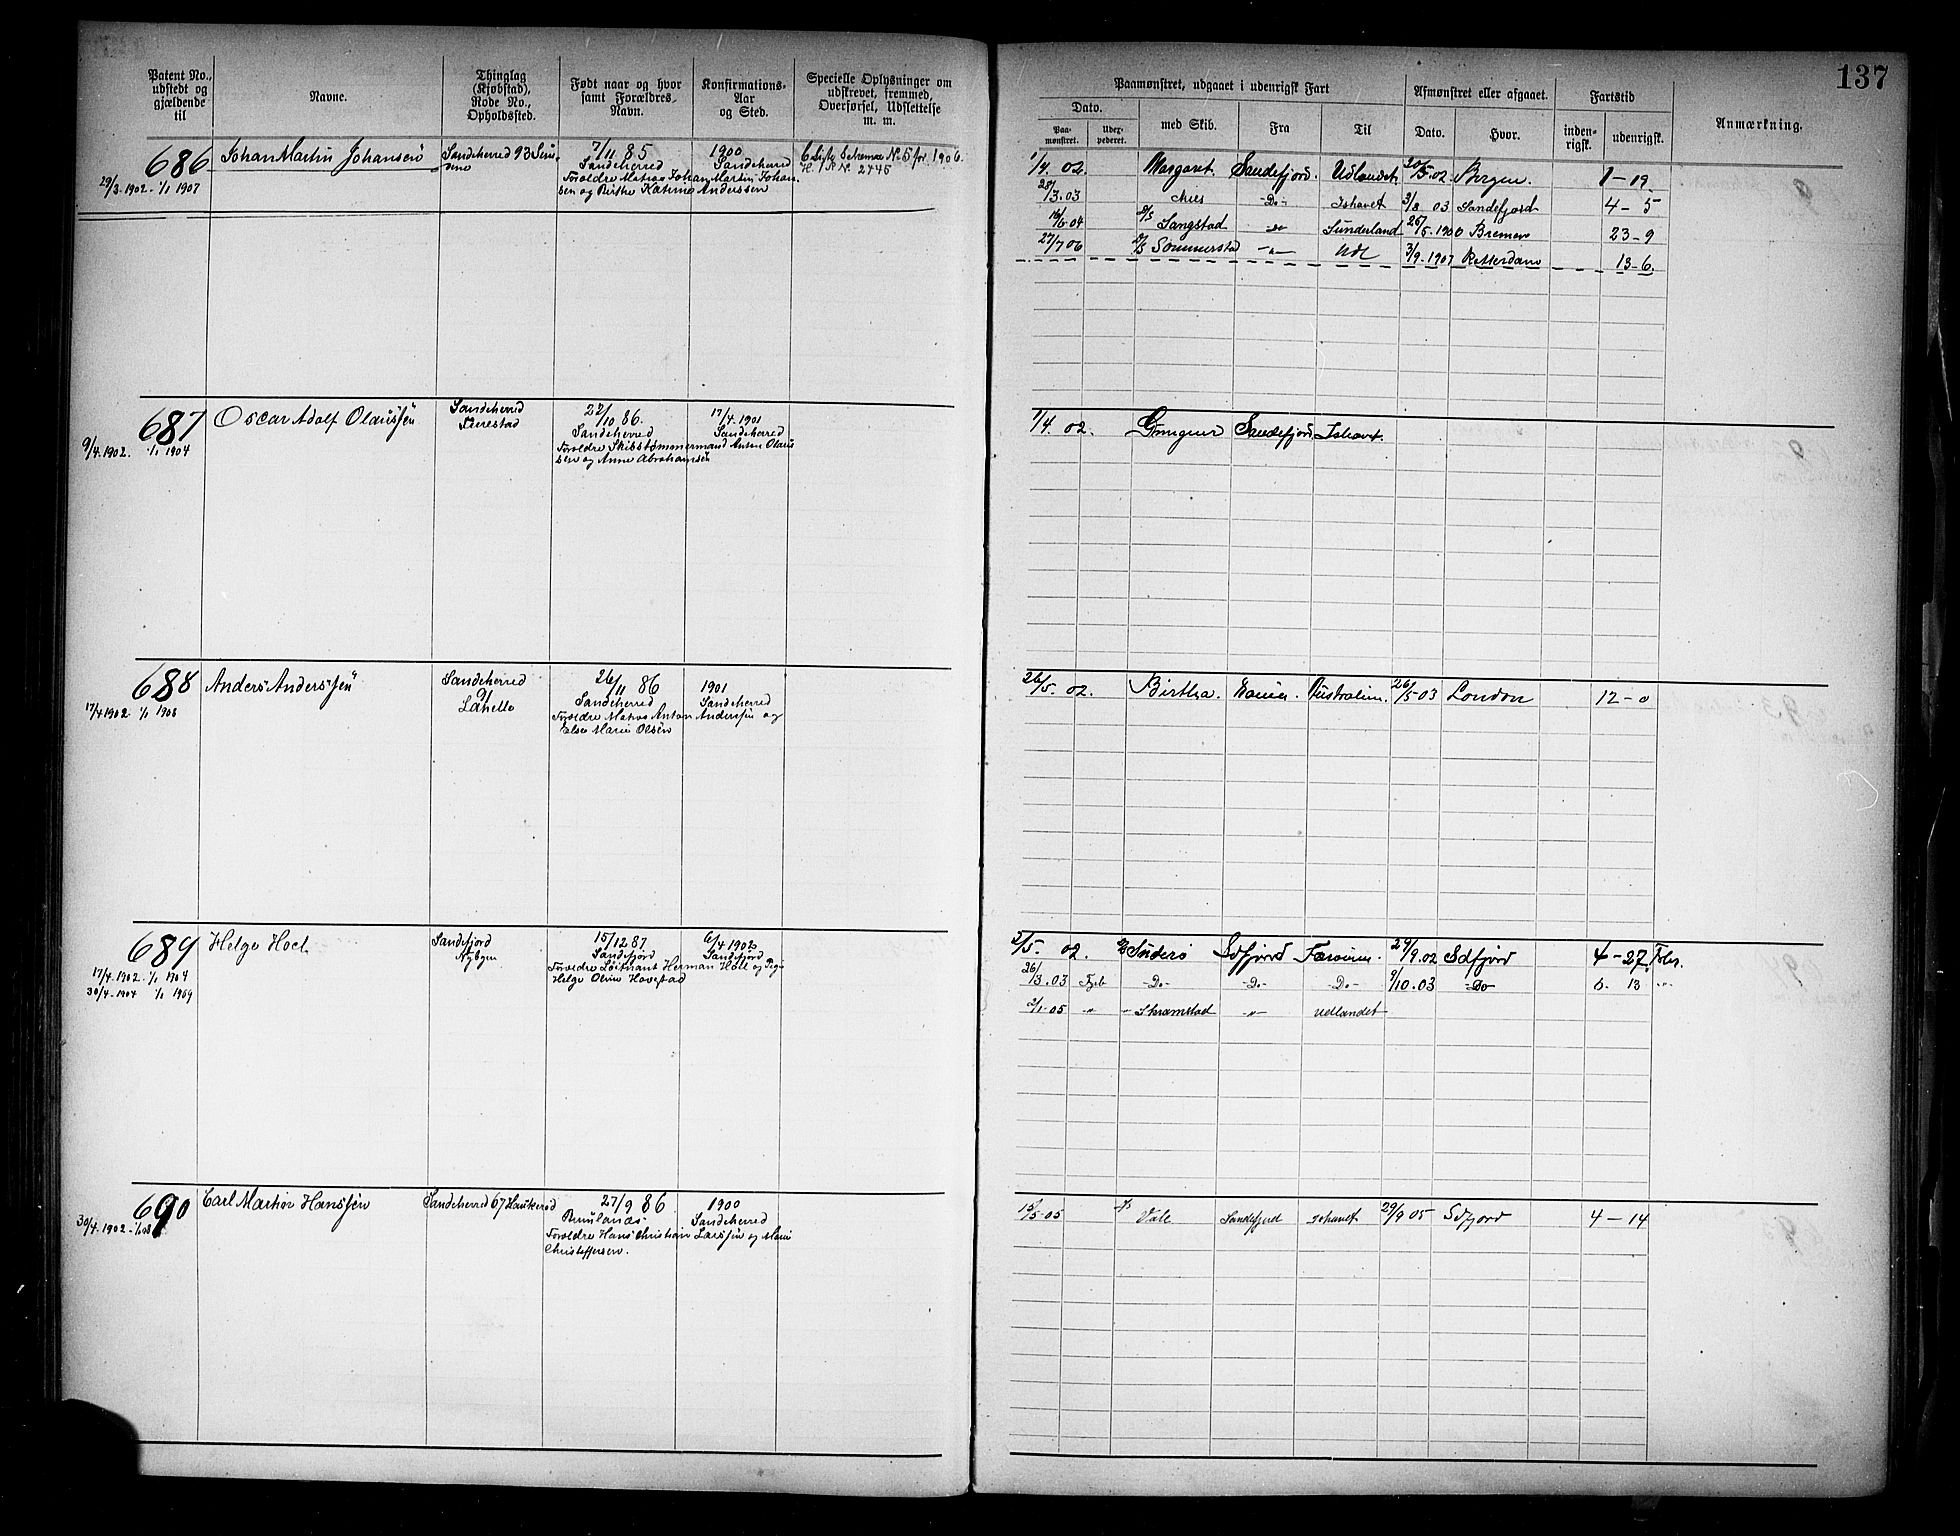 137
Patent No., udstedt og gjældende til
Navne.
Thinglag (Kjøbstad), Rode No., Opholdssted.
Født naar og hvor samt Forældres Navn.
Konfirmations-Aar og Sted.
Specielle Oplysninger om udskrevet, fremmed, Overførsel, Udslettelse m. m.
Paamønstret, udgaaet i udenrigsk Fart
Afmønstret eller afgaaet.
Fartstid
Anmærkning.
Dato.
Paamønstret.
med Skib.
Fra
Til
Dato.
Hvor.
indenrigsk.
udenrigsk.
686
29/3 1902 - 1/1 1907
Johan Martin Johansen
Sandeherred 93
7/11 85
Sandeherred
Forældre Matros Johan Martin Johansen og Katrine Anderssen
1900
Sandeherred
No 5 for 1906.
No. 2745
1/4. 02. Margaret. Sandefjord. Udlandet. 02 Bergen. 1-19.
28/3. 03 -Do- Ishavet 3/8 03 Sandefjord 4-5
04 Sangstad Sunderland Bremen 23-9
27/7 06 Sommerstad -"- Udl 3/9-1907 Rotterdam 13-6.
687
9/4. 1902. 1/1 1904
Oscar Adolf Olaussen
Sandeherred
Furestad
22/10 86.
Sandeherred
Forældre Skibstømmermand Anton Olaussen og Anne Abrahamsen
17/4. 1901
Sandeherred
02. Sandefjord. Ishavet.
688
17/4 1902. 1/1 1908
Anders Anderssen
Sandeherred
91
Lahelle
26/11 86
Sandeherred
Forældre Matros Anton Anderssen og
Else Marie Olsen
1901
Sandeherred
26/5. 02. Birtha. Australien. 26/5 03 London 12-0
689
17/4. 1902. 1/1 1904
30/4-1904 1/1 1909
Helge Hoel
Sandefjord
Nybyen
15/12 87
Sandefjord
Forældre Løitnant Herman
Helga Oline Hovestad
6/4 1902
Sandefjord
2/5. 02. Sdfjord 29/9. 02 Sdfjord 4-27
26/3. 03 -Do- -Do- -Do- 9/10. 03 -Do- 13 -"-
2/1-05 -"- Skramstad -"- Udlandet
690
30/4. 1902
Carl Martin Hanssen
Sandeherred 67 Haukerød
27/9 86
Brunlanæs
Forældre Hans Christian Larssen og Marie
Christoffersen.
1900
Sandeherred
15/5-05 Vale Sandefjord Ishavet 29/9 05 Sdfjord 4-14